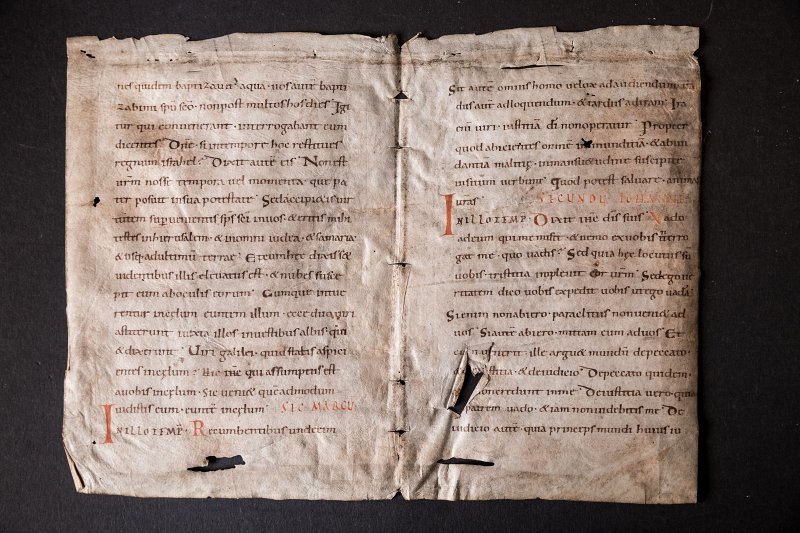 nes quidem baptizavit aqua · vos autē bapti
zabimini spū scō · non post multos hos dies · Igi
tur qui convenerant · interrogabant eum
dicentes · Dñe · si in tempore hoc restitues
regnum israhel? Dixit autē eis · Non est
urm nosse tempora vel momenta · que pa
ter posuit in sua potestate · Sed accipietis vir
tutem supervenientis sps sci in vos · & eritis mihi
testes in hierusalem · & in omni iudea · & samaria
& usq; ad ultimū terrae · Et cum hęc dixiss&
videntibus illis elevatus est · & nubes susce
pit eum ab oculis eorum · Cumque intue
rentur in celum euntem illum · ecce duo viri
astiterunt iuxta illos in vestibus albis · qui
& dixerunt · Viri galilei · quid statis aspici
entes in celum? Hic ihc qui assumptus est
a vobis in celum · sic veni& quē admodum
vidistis eum · eunte in celum · SEC MARCU
IN ILLO TEMP · Recumbentibus undecim
Sit autē omnis homo velox ad audiendum
dus autē ad loquendum · & tardus ad iram · Ira
eni viri · iustitiā di non operatur · Propter
quod abicientes omnē inmunditiā · & abun
dantiā malitię · in mansuetudine suscipite
insitum verbum · Quod potest salvare animas
vras · SECUNDU IOHANNE
IN ILLO TEMP · Dixit ihc dis suis · Vado
ad eum qui me misit · & nemo ex vobis interro
gat me · quo vadis? Sed quia hęc locutus sū
vobis · tristitia implevit cor vrm · Sed ego ve
ritatem dico vobis expedit vobis ut ego vadā
Si enim non abiero · paraclitus non veniet ad
vos · Si autē abiero · mittam eum ad vos · Et
cum venerit · ille argu& mundū de peccato ·
& de iustitia · & de iudicio · De peccato quidem ·
non crediderunt in me · De iustitia vero · quia
ad patrem vado · & iam non videbitis me · De
iudicio autē · quia princeps mundi huius iu